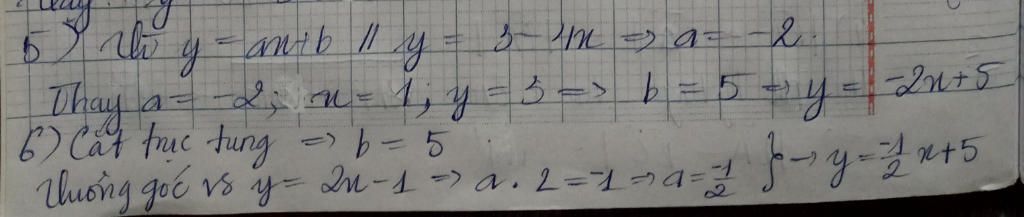 5) Vì y = ax+b // y = 3-4x => a = -2.
Thay a = -2; x = 1; y = 3 => b = 5 => y = -2x+5
6) Cắt trục tung => b = 5
Vuông góc vs y = 2x-1 => a.2 = -1 => a = -1/2 } → y = -1/2 x+5